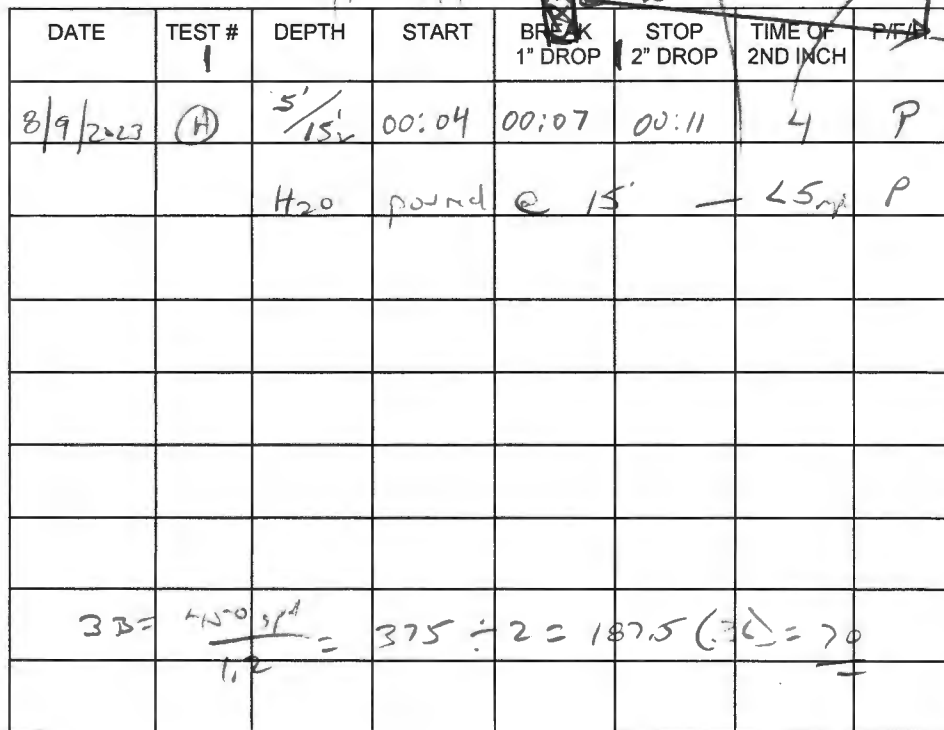 DATE TEST # DEPTH START BREAK 1" DROP STOP 2" DROP TIME OF 2ND INCH P/F/H
1
8/9/2023 H 5'/15' 00:04 00:07 00:11 4 P
H20 pound @ 15' — <5 P
3B= 450 gpd / 1.2 = 375 ÷ 2 = 187.5 ( ) = 70